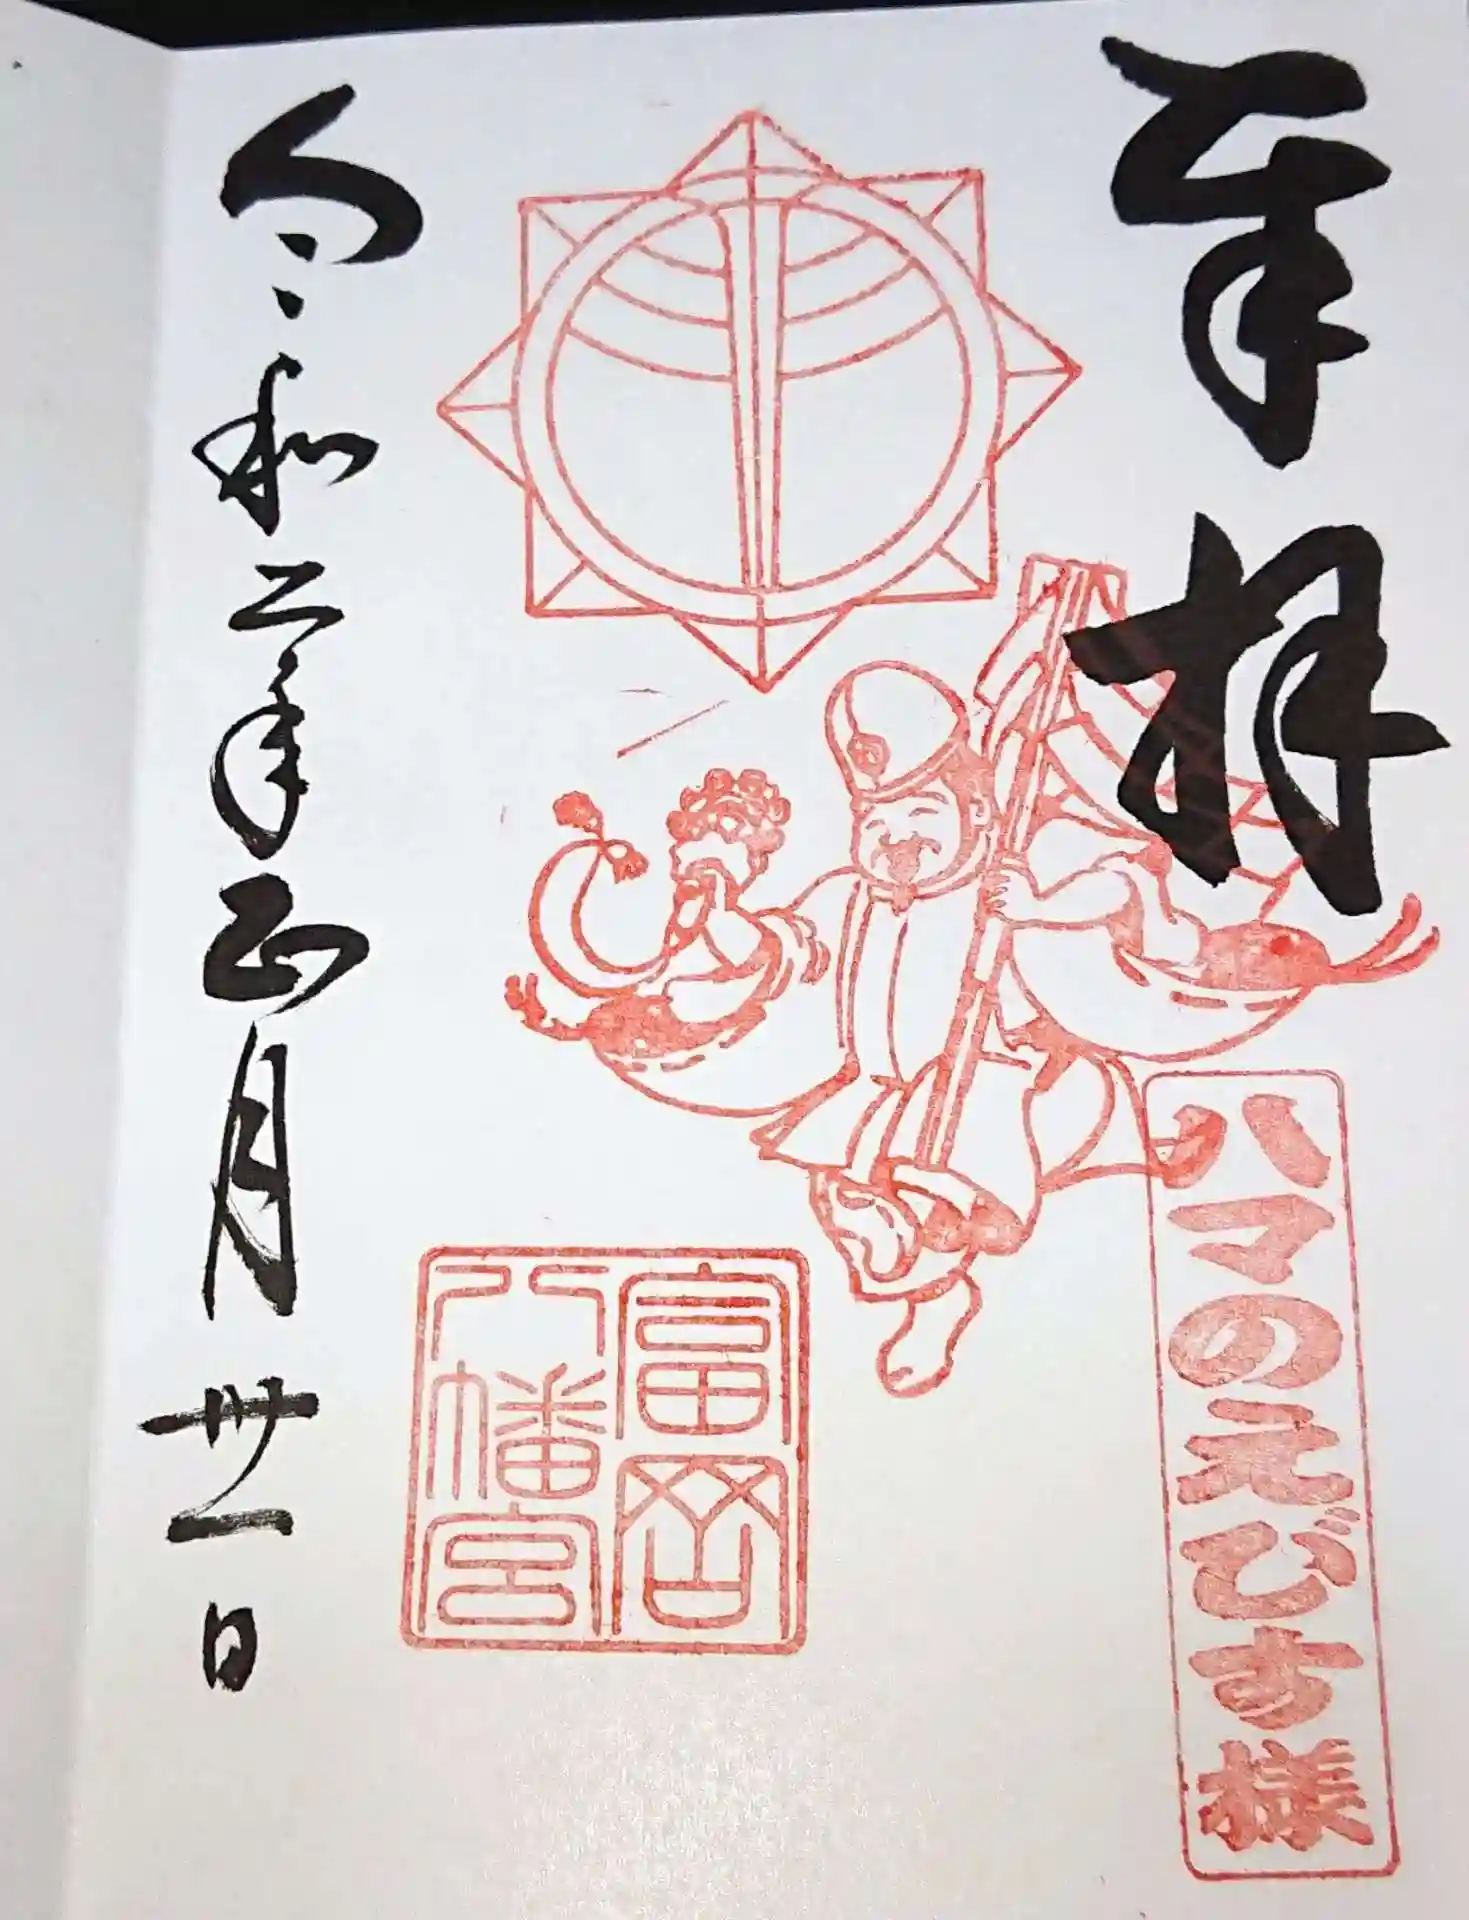 奉拝
ハマのえびす様
富岡
八幡宮
令和二年正月丗一日